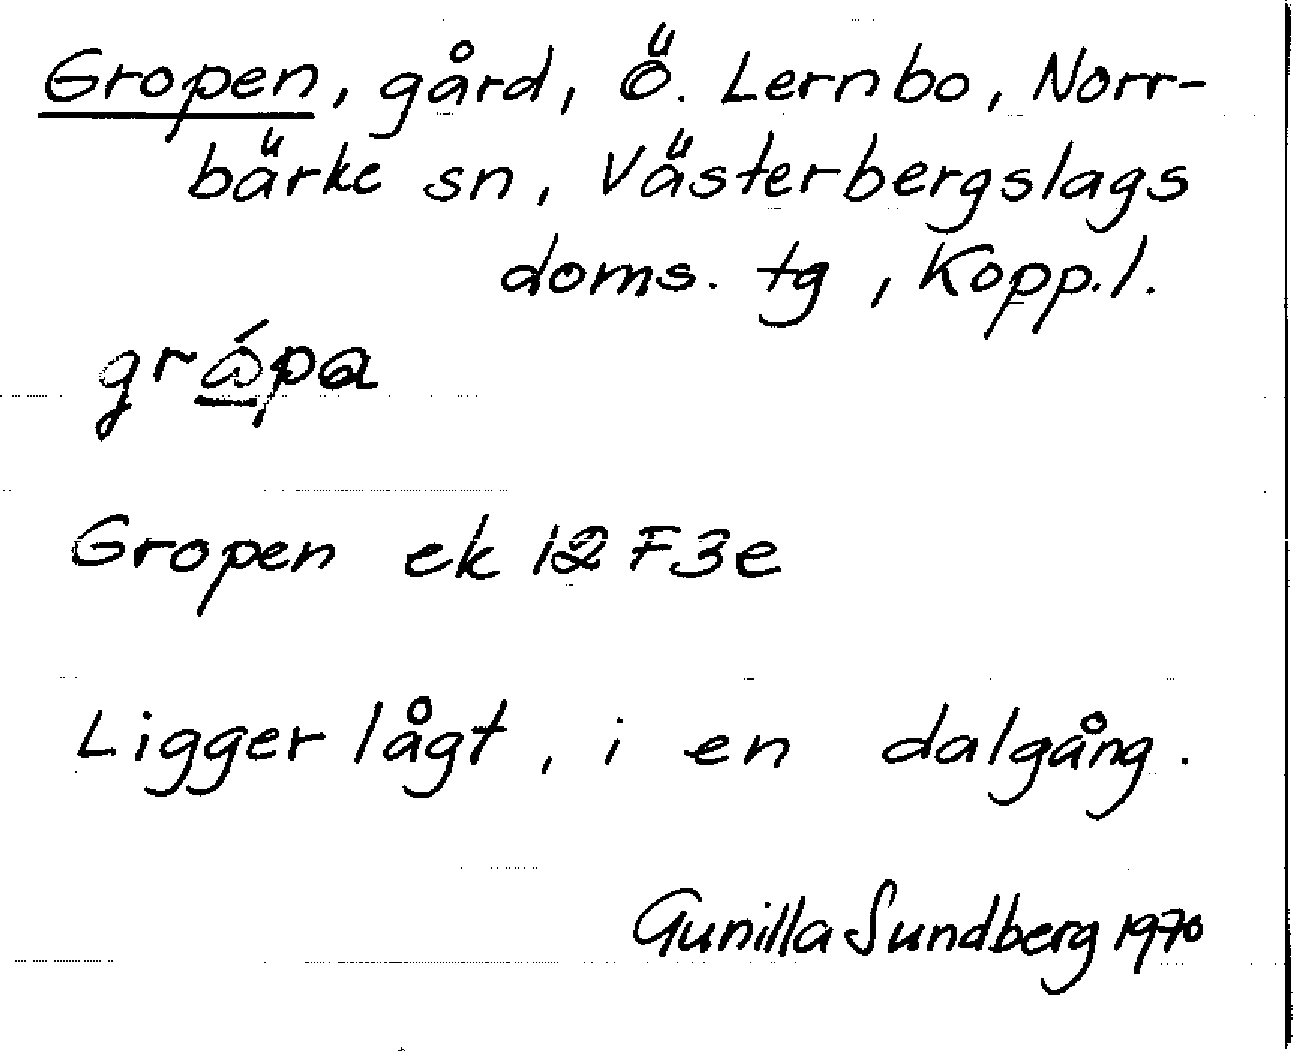 Gropen, gård, Ö. Lernbo, Norr-
bärke sn, Västerbergslags
doms. tg, Kopp.l.
Gropen ek 12 F3e
Ligger lågt, i en dalgång.
Gunilla Sundberg 1970